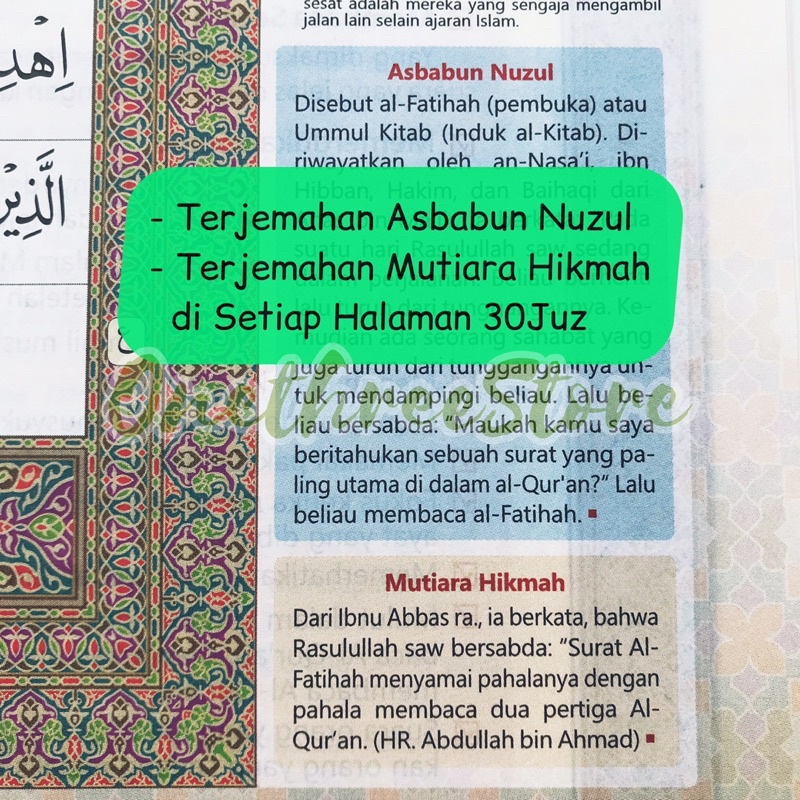 sesat adalah mereka yang sengaja mengambil
jalan lain selain ajaran Islam.
Asbabun Nuzul
Disebut al-Fatihah (pembuka) atau
Ummul Kitab (Induk al-Kitab). Di-
riwayatkan oleh an-Nasa'i, ibn
Hibban, Hakim, dan Baihaqi dari
suatu hari Rasulullah saw sedang
dalam perjalanan. Beliau
lalu turun dari tunggangannya. Ke-
mudian ada seorang sahabat yang
juga turun dari tunggangannya un-
tuk mendampingi beliau. Lalu be-
liau bersabda: "Maukah kamu saya
beritahukan sebuah surat yang pa-
ling utama di dalam al-Qur'an?" Lalu
beliau membaca al-Fatihah.
- Terjemahan Asbabun Nuzul
- Terjemahan Mutiara Hikmah
di Setiap Halaman 30Juz
OnethreeStore
Mutiara Hikmah
Dari Ibnu Abbas ra., ia berkata, bahwa
Rasulullah saw bersabda: "Surat Al-
Fatihah menyamai pahalanya dengan
pahala membaca dua pertiga Al-
Qur'an. (HR. Abdullah bin Ahmad)